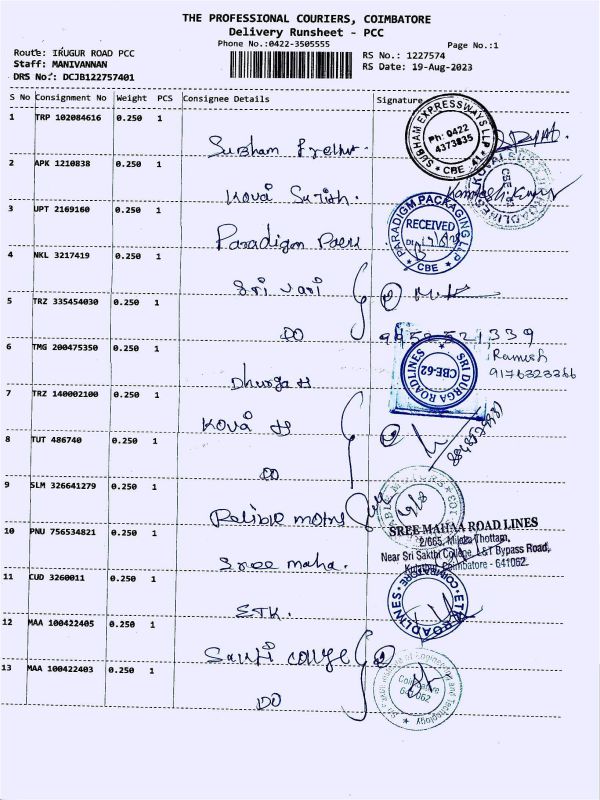 THE PROFESSIONAL COURIERS, COIMBATORE
Delivery Runsheet - PCC
Phone No.:0422-3505555
Page No.:1
Route: IRUGUR ROAD PCC
Staff: MANIVANNAN
DRS No: DCJB122757401
RS No.: 1227574
RS Date: 19-Aug-2023
S No Consignment No Weight PCS Consignee Details Signature
1 TRP 102084616 0.250 1
SUBHAM EXPRESSWAYS LLP
Ph: 0422
4373835
CBE - 41
2 APK 1210838 0.250 1
Kova Surish.
3 UPT 2169160 0.250 1
Paradigm
PARADIGM PACKAGING LLP
RECEIVED
CBE
4 NKL 3217419 0.250 1
Sri vari
5 TRZ 335454030 0.250 1
DO
6 TMG 200475350 0.250 1
Dhurga
SRI DURGA ROADLINES
CBE-62
Ramesh
9176323266
7 TRZ 140002100 0.250 1
Kova
8 TUT 486740 0.250 1
DO
9 SLM 326641279 0.250 1
10 PNU 756534821 0.250 1
Sree maha.
SREE MAHAA ROAD LINES
2/665, Thottam,
Near Sri Sakthi College, L&T Bypass Road,
Coimbatore - 641062.
11 CUD 3260011 0.250 1
ETK.
ETK ROADLINES
COIMBATORE
12 MAA 100422405 0.250 1
13 MAA 100422403 0.250 1
DO
Engineering and Technology
Coimbatore
641 062